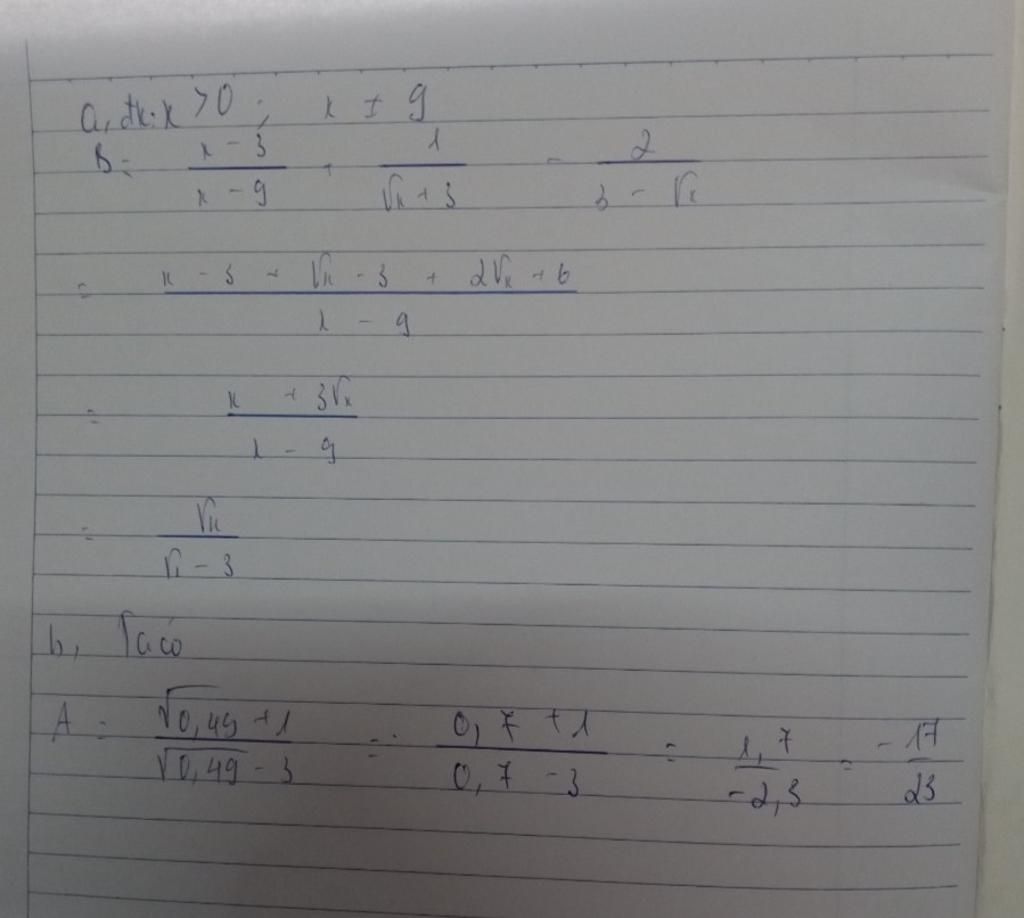 a, đk: x > 0 ; x ≠ 9
B = \frac{x - 3}{x - 9} + \frac{1}{\sqrt{x} + 3} - \frac{2}{3 - \sqrt{x}}
= \frac{x - 3 + \sqrt{x} - 3 + 2\sqrt{x} + 6}{x - 9}
= \frac{x + 3\sqrt{x}}{x - 9}
= \frac{\sqrt{x}}{\sqrt{x} - 3}
b, Ta có
A = \frac{\sqrt{0,49} + 1}{\sqrt{0,49} - 3} = \frac{0,7 + 1}{0,7 - 3} = \frac{1,7}{-2,3} = \frac{-17}{23}